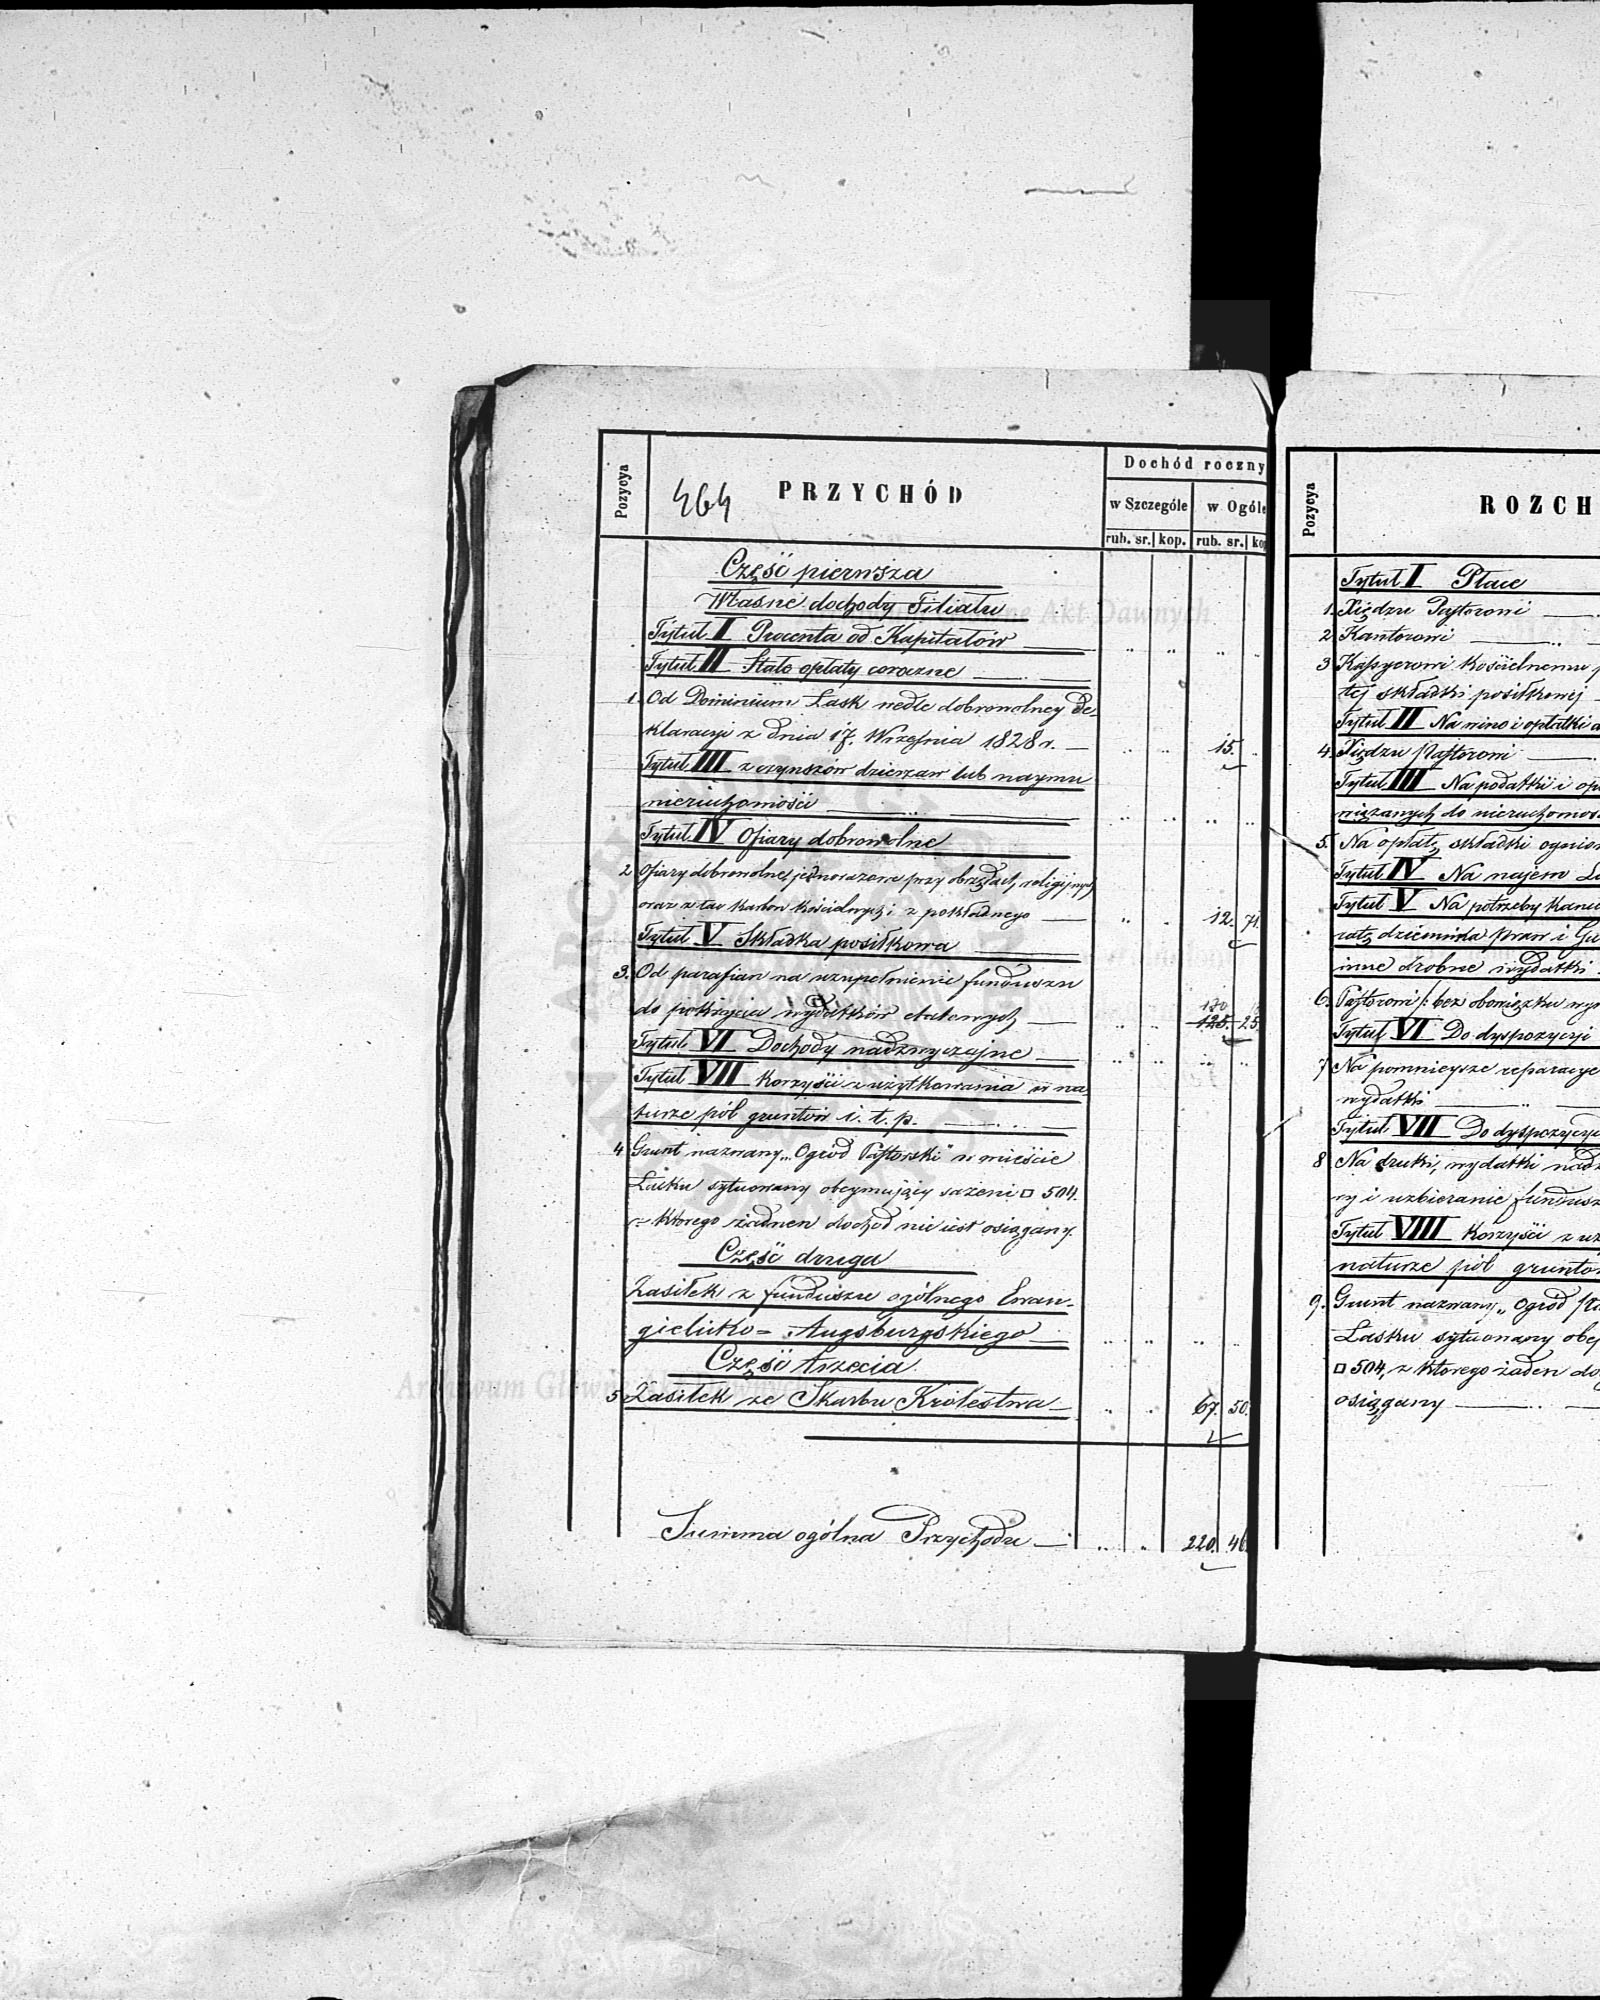 Pozycya
464
PRZYCHÓD
Dochód roczny
w Szczególe
w Ogóle
rub. sr. kop. rub. sr. kop
Część pierwsza
Własne dochody Filiału
Tytuł I Procenta od Kapitałów
Tytuł II Stałe opłaty coroczne
1. Od Dominium Łask wedle dobrowolney de-
klaracyi z dnia 17. Września 1828 r. — 15.
Tytuł III z czynszów dzierzaw lub naymu
nieruchomości
Tytuł IV Ofiary dobrowolne
2 Ofiary dobrowolne, jednorazowe przy obrzędach religijnych
oraz z tac karbon kościelnych i z pokładnego — 12. 71.
Tytuł V Składka posiłkowa
3. Od parafian na uzupełnienie funduszu
130
do pokrycia wydatków etatowych — 125. 25.
Tytuł VI Dochody nadzwyczajne —
Tytuł VII Korzyści z użytkowania w na-
turze pól gruntów i. t. p.
4 Grunt nazwany „Ogród Pastorski" w mieście
Łasku sytuowany obeymujący sażeni □ 504.
z którego żadnen dochod nie iest osiągany.
Część druga
Zasiłek z funduszu ogólnego Ewan-
gielicko = Augsburgskiego
Część trzecia
5 Zasiłek ze Skarbu Królestwa — 67. 50.
Summa ogólna Przychodu — 220. 46.
Pozycya
ROZCH
Tytuł I Płace
1. Xiędzu Pastorowi
2 Kantorowi
3 Kassyerowi kościelnemu
tej składki posiłkowej
Tytuł II Na wino i opłatki
4. Xiędzu Pastorowi
Tytuł III Na podatki i
wiązanych do nieruchomos
5. Na opłatę składki ognio
Tytuł IV Na najem
Tytuł V Na potrzeby
ratę dziennika Praw i
inne drobne wydatki
6. Pastorowi /: bez obowiązku
Tytuł VI Do dyspozycyi
7 Na pomnieysze reparacye
wydatki
Tytuł VII Do dyspozycyi
8 Na druki, wydatki
ry i uzbieranie fundusz
Tytuł VIII Korzyści z
naturze pól gruntów
9. Grunt nazwany „Ogród
Łasku sytuowany
□ 504, z którego żaden
osiągany